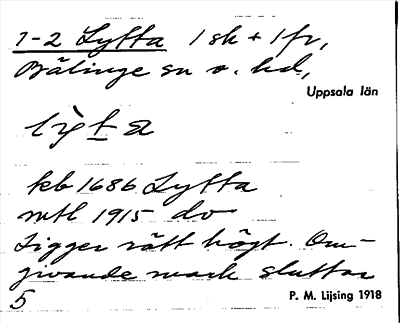 1-2 Lytta 1 sk + 1 fr,
Bälinge sn o. hd,
Uppsala län
lỳt a
kb 1686 Lytta
mtl 1915 do
Ligger rätt högt. Om-
givande mark sluttar
5
P. M. Lijsing 1918